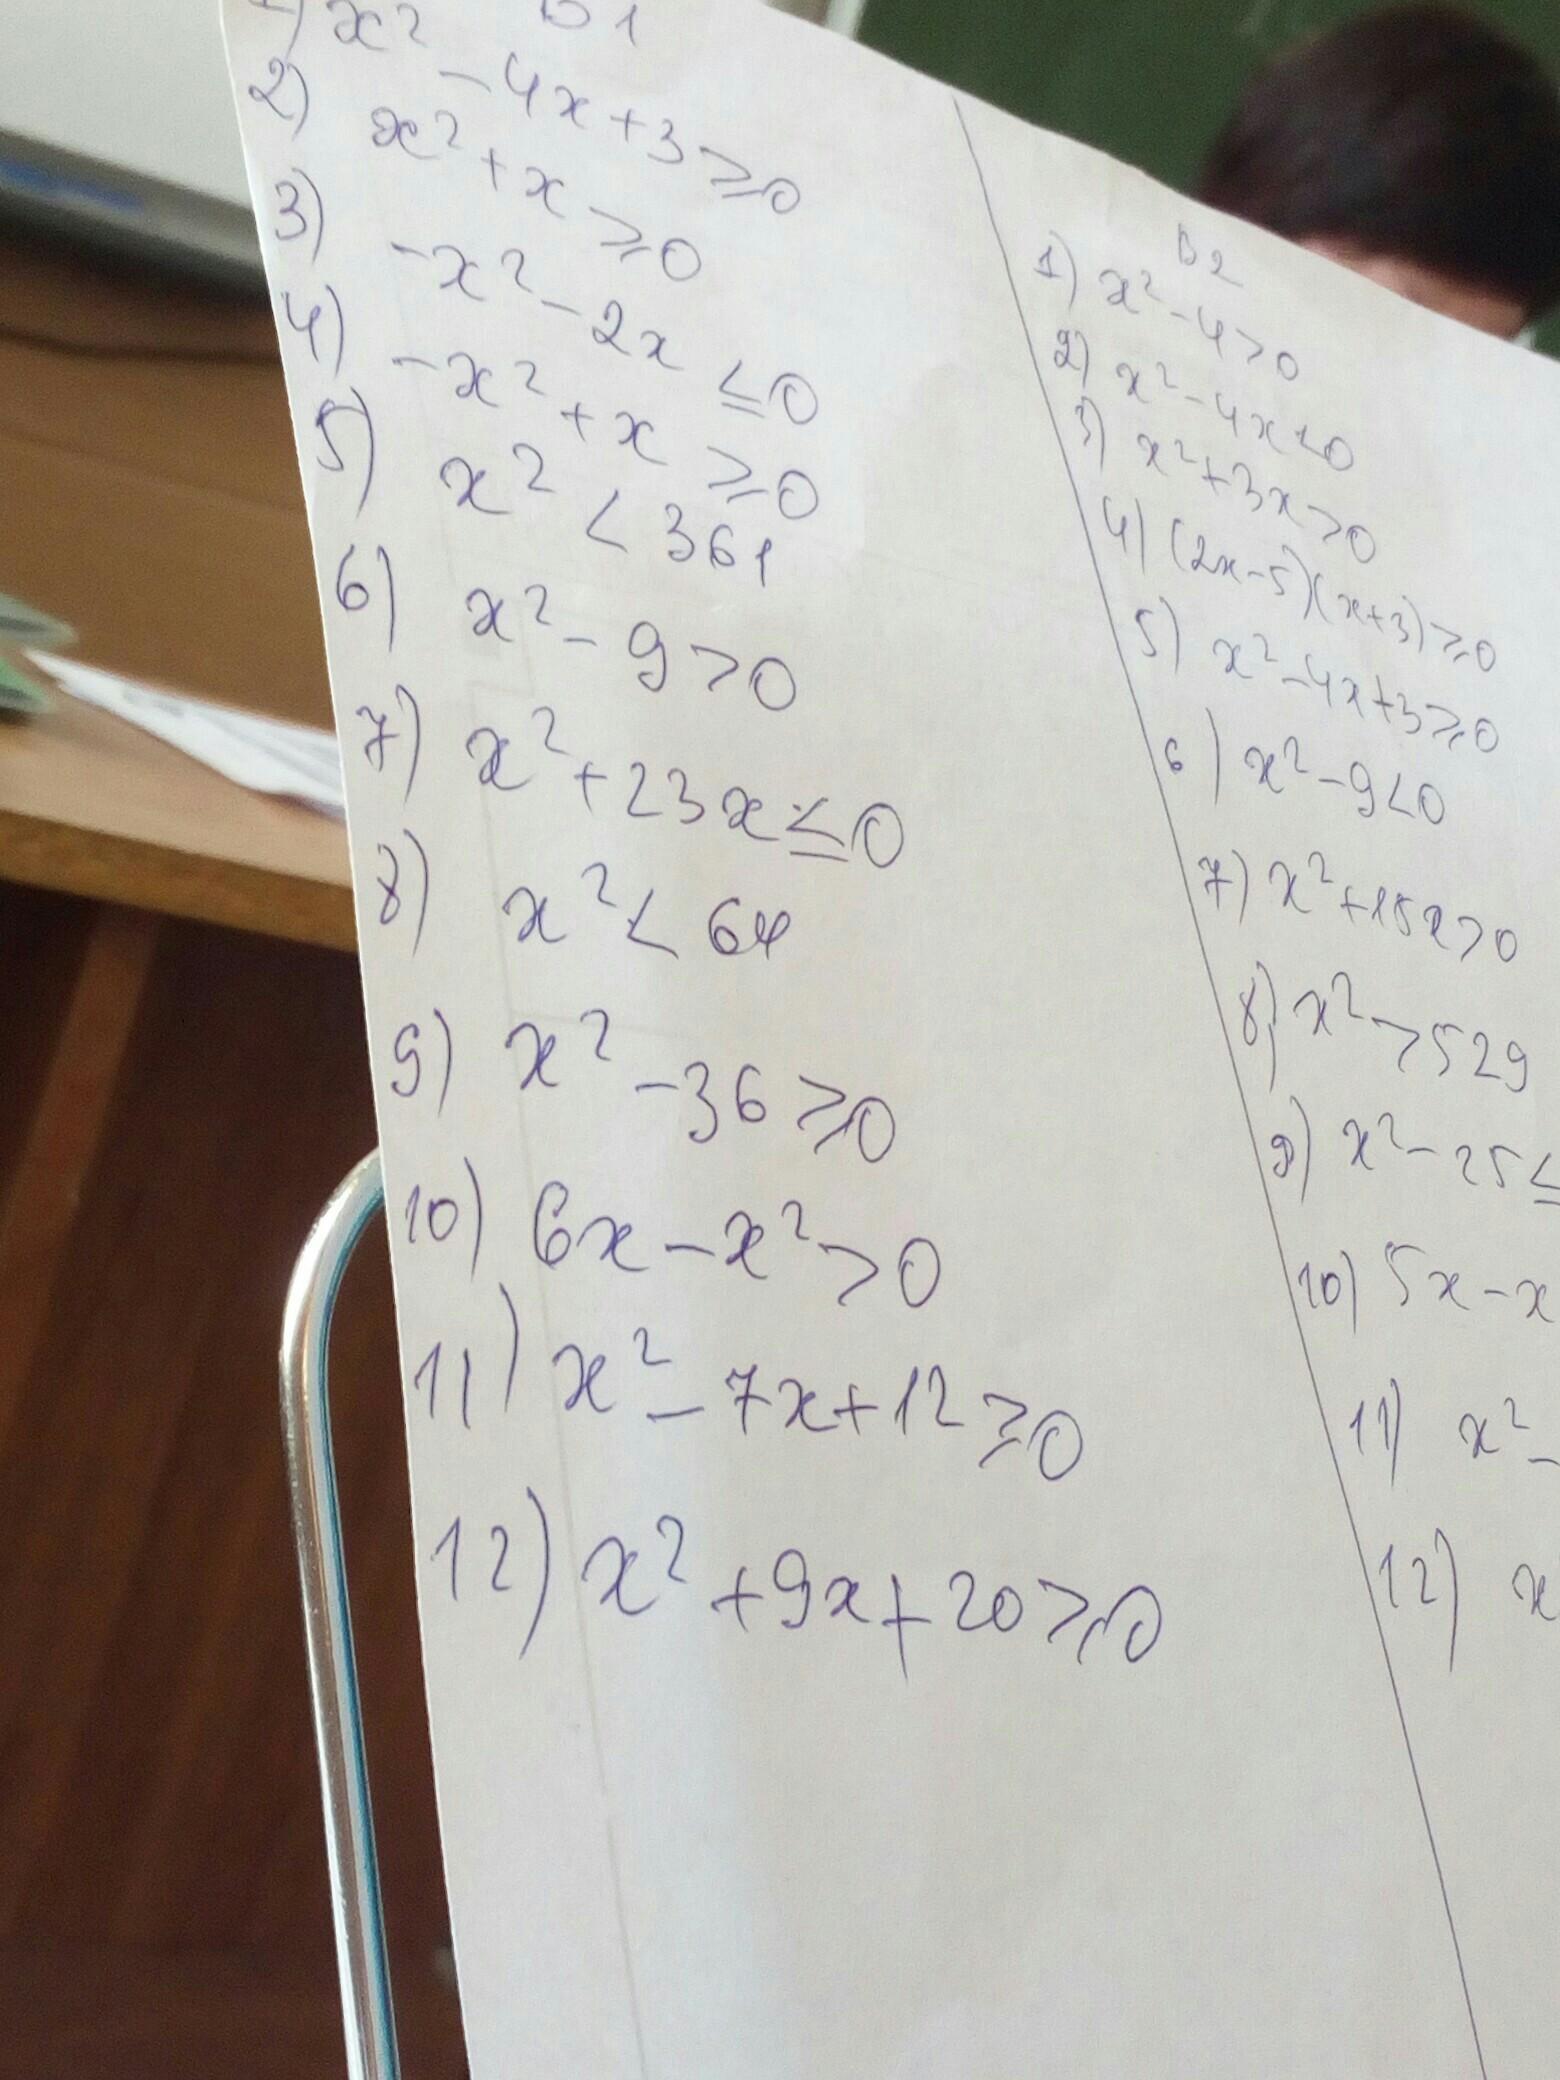 В1
1) x² - 4x + 3 ⩾ 0
2) x² + x ⩾ 0
3) -x² - 2x ≤ 0
4) -x² + x ⩾ 0
5) x² < 361
6) x² - 9 > 0
7) x² + 23x ≤ 0
8) x² < 64
9) x² - 36 ⩾ 0
10) 6x - x² > 0
11) x² - 7x + 12 ⩾ 0
12) x² + 9x + 20 ⩾ 0
В2
1) x² - 4 > 0
2) x² - 4x < 0
3) x² + 3x > 0
4) (2x - 5)(x + 3) ⩾ 0
5) x² - 4x + 3 ⩾ 0
6) x² - 9 < 0
7) x² + 15x > 0
8) x² > 529
9) x² - 25 ≤
10) 5x - x
11) x² -
12) x